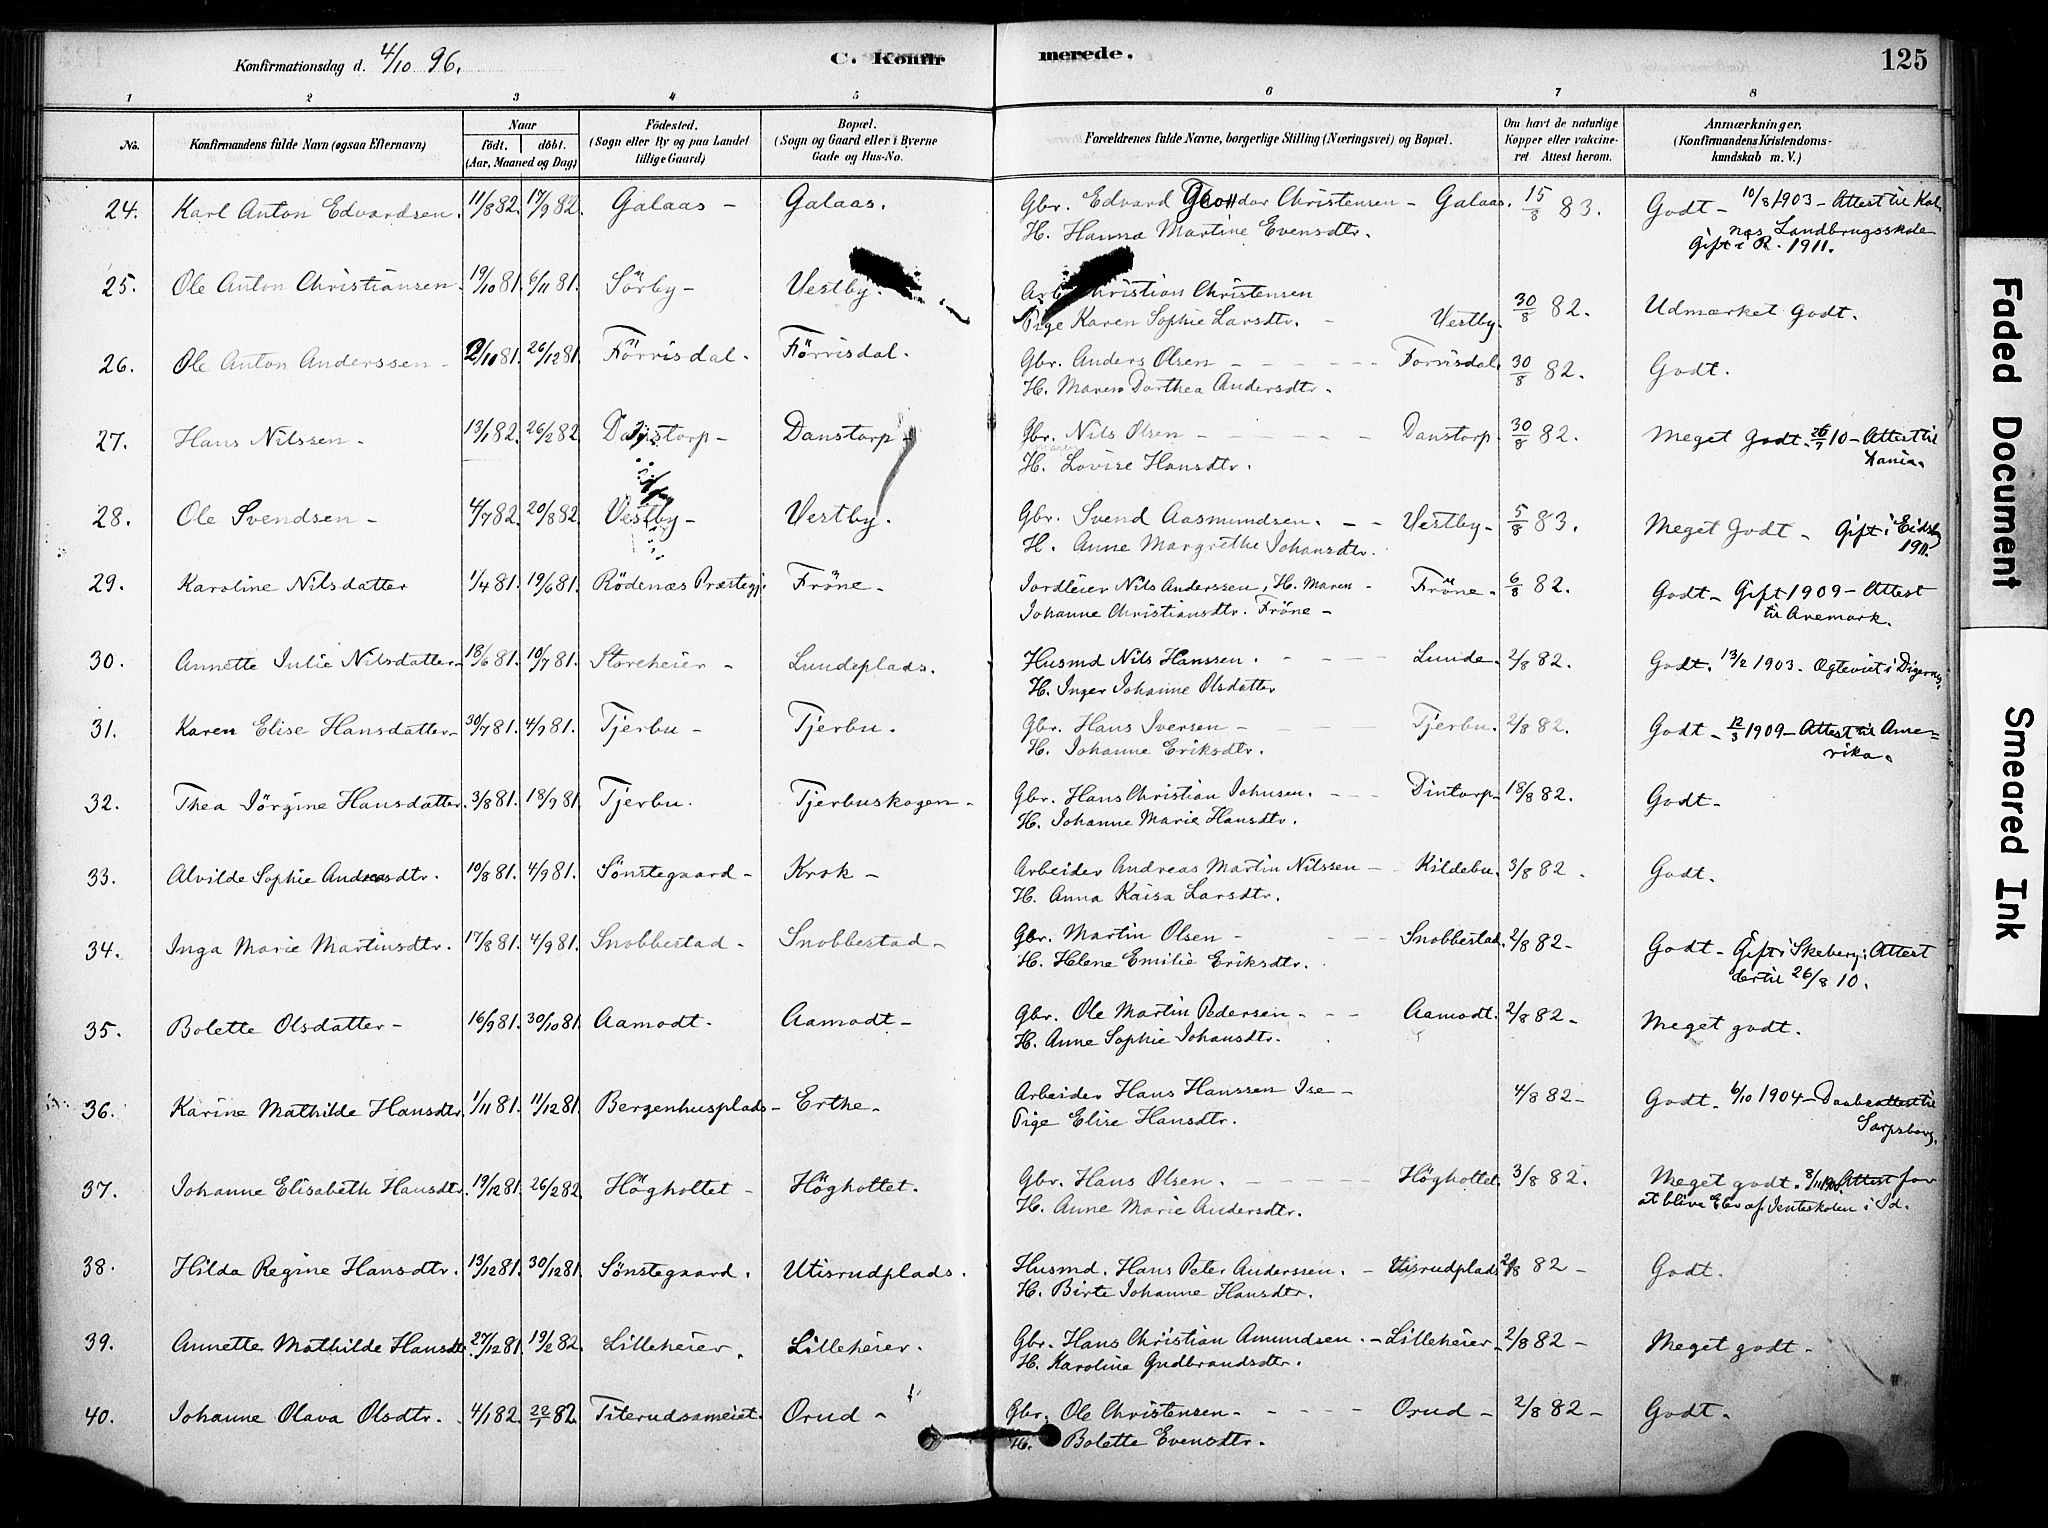 Konfirmationsdag d. 4/10 96.
C. Konfirmerede.
125
1 2 3 4 5 6 7 8
No. Konfirmandens fulde Navn (ogsaa Efternavn) Naar födt. döbt. (Aar, Maaned og Dag) Födested. (Sogn eller By og paa Landet tillige Gaard) Bopæl. (Sogn og Gaard eller i Byerne Gade og Hus-No. Forældrenes fulde Navne, borgerlige Stilling (Næringsvei) og Bopæl. Om havt de naturlige Kopper eller vakcineret Attest herom. Anmærkninger, (Konfirmandens Kristendomskundskab m. V.)
24. Karl Anton Edvardsen. 11/8 82. 17/9 82. Galaas – Galaas. Gbr. Edvard Christensen – Galaas. 15/8 83. Godt – 10/8 1903 – Attest til Kal
H. Hanna Martine Evensdtr. nes Landbrugsskole
Gift i R. 1911.
25. Ole Anton Christiansen. 19/10 81. 6/11 81. Sörby – Vestby. Arb. Christian Christensen
Pige Karen Sophie Larsdtr. – Vestby. 30/8 82. Udmærket godt.
26. Ole Anton Anderssen – 2/10 81. 26/12 81. Förrisdal. Förrisdal. Gbr. Anders Olsen – Forrisdal. 30/8 82. Godt.
H. Maren Dorthea Andersdtr.
27. Hans Nilssen – 13/1 82. 26/2 82. Danstorp – Danstorp – Gbr. Nils Olsen – Danstorp. 30/8 82. Meget Godt. 26/7 10 – Attest til
H. Lovise Hansdtr. Xania.
28. Ole Svendsen – 4/7 82. 20/8 82. Vestby – Vestby. Gbr. Svend Aasmundsen. – Vestby – 5/8 83. Meget Godt – Gift i Eidsb
H. Anne Margrethe Johansdtr. 1911.
29. Karoline Nilsdatter 1/4 81. 19/6 81. Rödenæs Præstegj. Fröne – Jordleier Nils Anderssen, H. Maren – Fröne – 6/8 82. Godt – Gift 1909 – Attest
Johanne Christiansdtr. Fröne – til Aremark.
30. Annette Julie Nilsdatter – 18/6 81. 10/7 81. Storeheier – Lundeplads. Husmd Nils Hanssen. – Lunde. 2/8 82. Godt. 13/2 1903. Ægteviet i Digernes.
H. Inger Johanne Olsdatter
31. Karen Elise Hansdatter – 30/7 81. 4/9 81. Tjerbu – Tjerbu. Gbr. Hans Iversen – Tjerbu. 2/8 82. Godt – 12/3 1909 – Attest til Ame=
H. Johanne Eriksdtr. rika.
32. Thea Jörgine Hansdatter. 3/8 81. 18/9 81. Tjerbu. Tjerbuskogen – Gbr. Hans Christian Johnsen. – Dintorp – 18/8 82. Godt –
H. Johanne Marie Hansdtr.
33. Alvilde Sophie Andreasdtr. 10/8 81. 4/9 81. Sönstegaard – Krok – Arbeider Andreas Martin Nilssen – Kildebu. 3/8 82. Godt.
H. Anna Kaisa Larsdtr.
34. Inga Marie Martinsdtr. 17/8 81. 4/9 81. Snobbestad – Snobbestad – Gbr. Martin Olsen – Snobbestad. 2/8 82 – Godt – Gift i Skeberg. Attest
H. Helene Emilie Eriksdtr. dertil 26/8 10.
35. Bolette Olsdatter – 16/9 81. 30/10 81. Aamodt. Aamodt – Gbr. Ole Martin Pedersen – Aamodt. 2/8 82 – Meget godt.
H. Anne Sophie Johansdtr.
36. Karine Mathilde Hansdtr. 1/11 81. 11/12 81. Bergenhusplads – Erthe – Arbeider Hans Hanssen Ise – 4/8 82 – Godt. 6/10 1904 – Daabsattest til
Pige Elise Hansdtr. Sarpsborg.
37. Johanne Elisabeth Hansdtr. 19/12 81. 26/2 82. Högholtet – Högholtet. Gbr. Hans Olsen. – Högholtet. 3/8 82. Meget godt. Attest for
H. Anne Marie Andersdtr. at blive Elev af Jenteskolen i Id.
38. Hilda Regine Hansdtr. 13/12 81. 30/12 81. Sönstegaard. Utisrudplads. Husmd. Hans Peter Anderssen. – Utisrudplads 2/8 82 – Godt.
H. Birte Johanne Hansdtr.
39. Annette Mathilde Hansdtr. 27/12 81. 19/2 82. Lilleheier. Lilleheier. Gbr. Hans Christian Amundsen. – Lilleheier – 2/8 82 – Meget godt –
H. Karoline Gudbrandsdtr.
40. Johanne Olava Olsdtr. 4/1 82. 22/1 82. Titerudsameiet. Orud – Gbr. Ole Christensen – Orud – 2/8 82 – Godt.
H. Bolette Evensdtr.
Faded Document
Smeared Ink